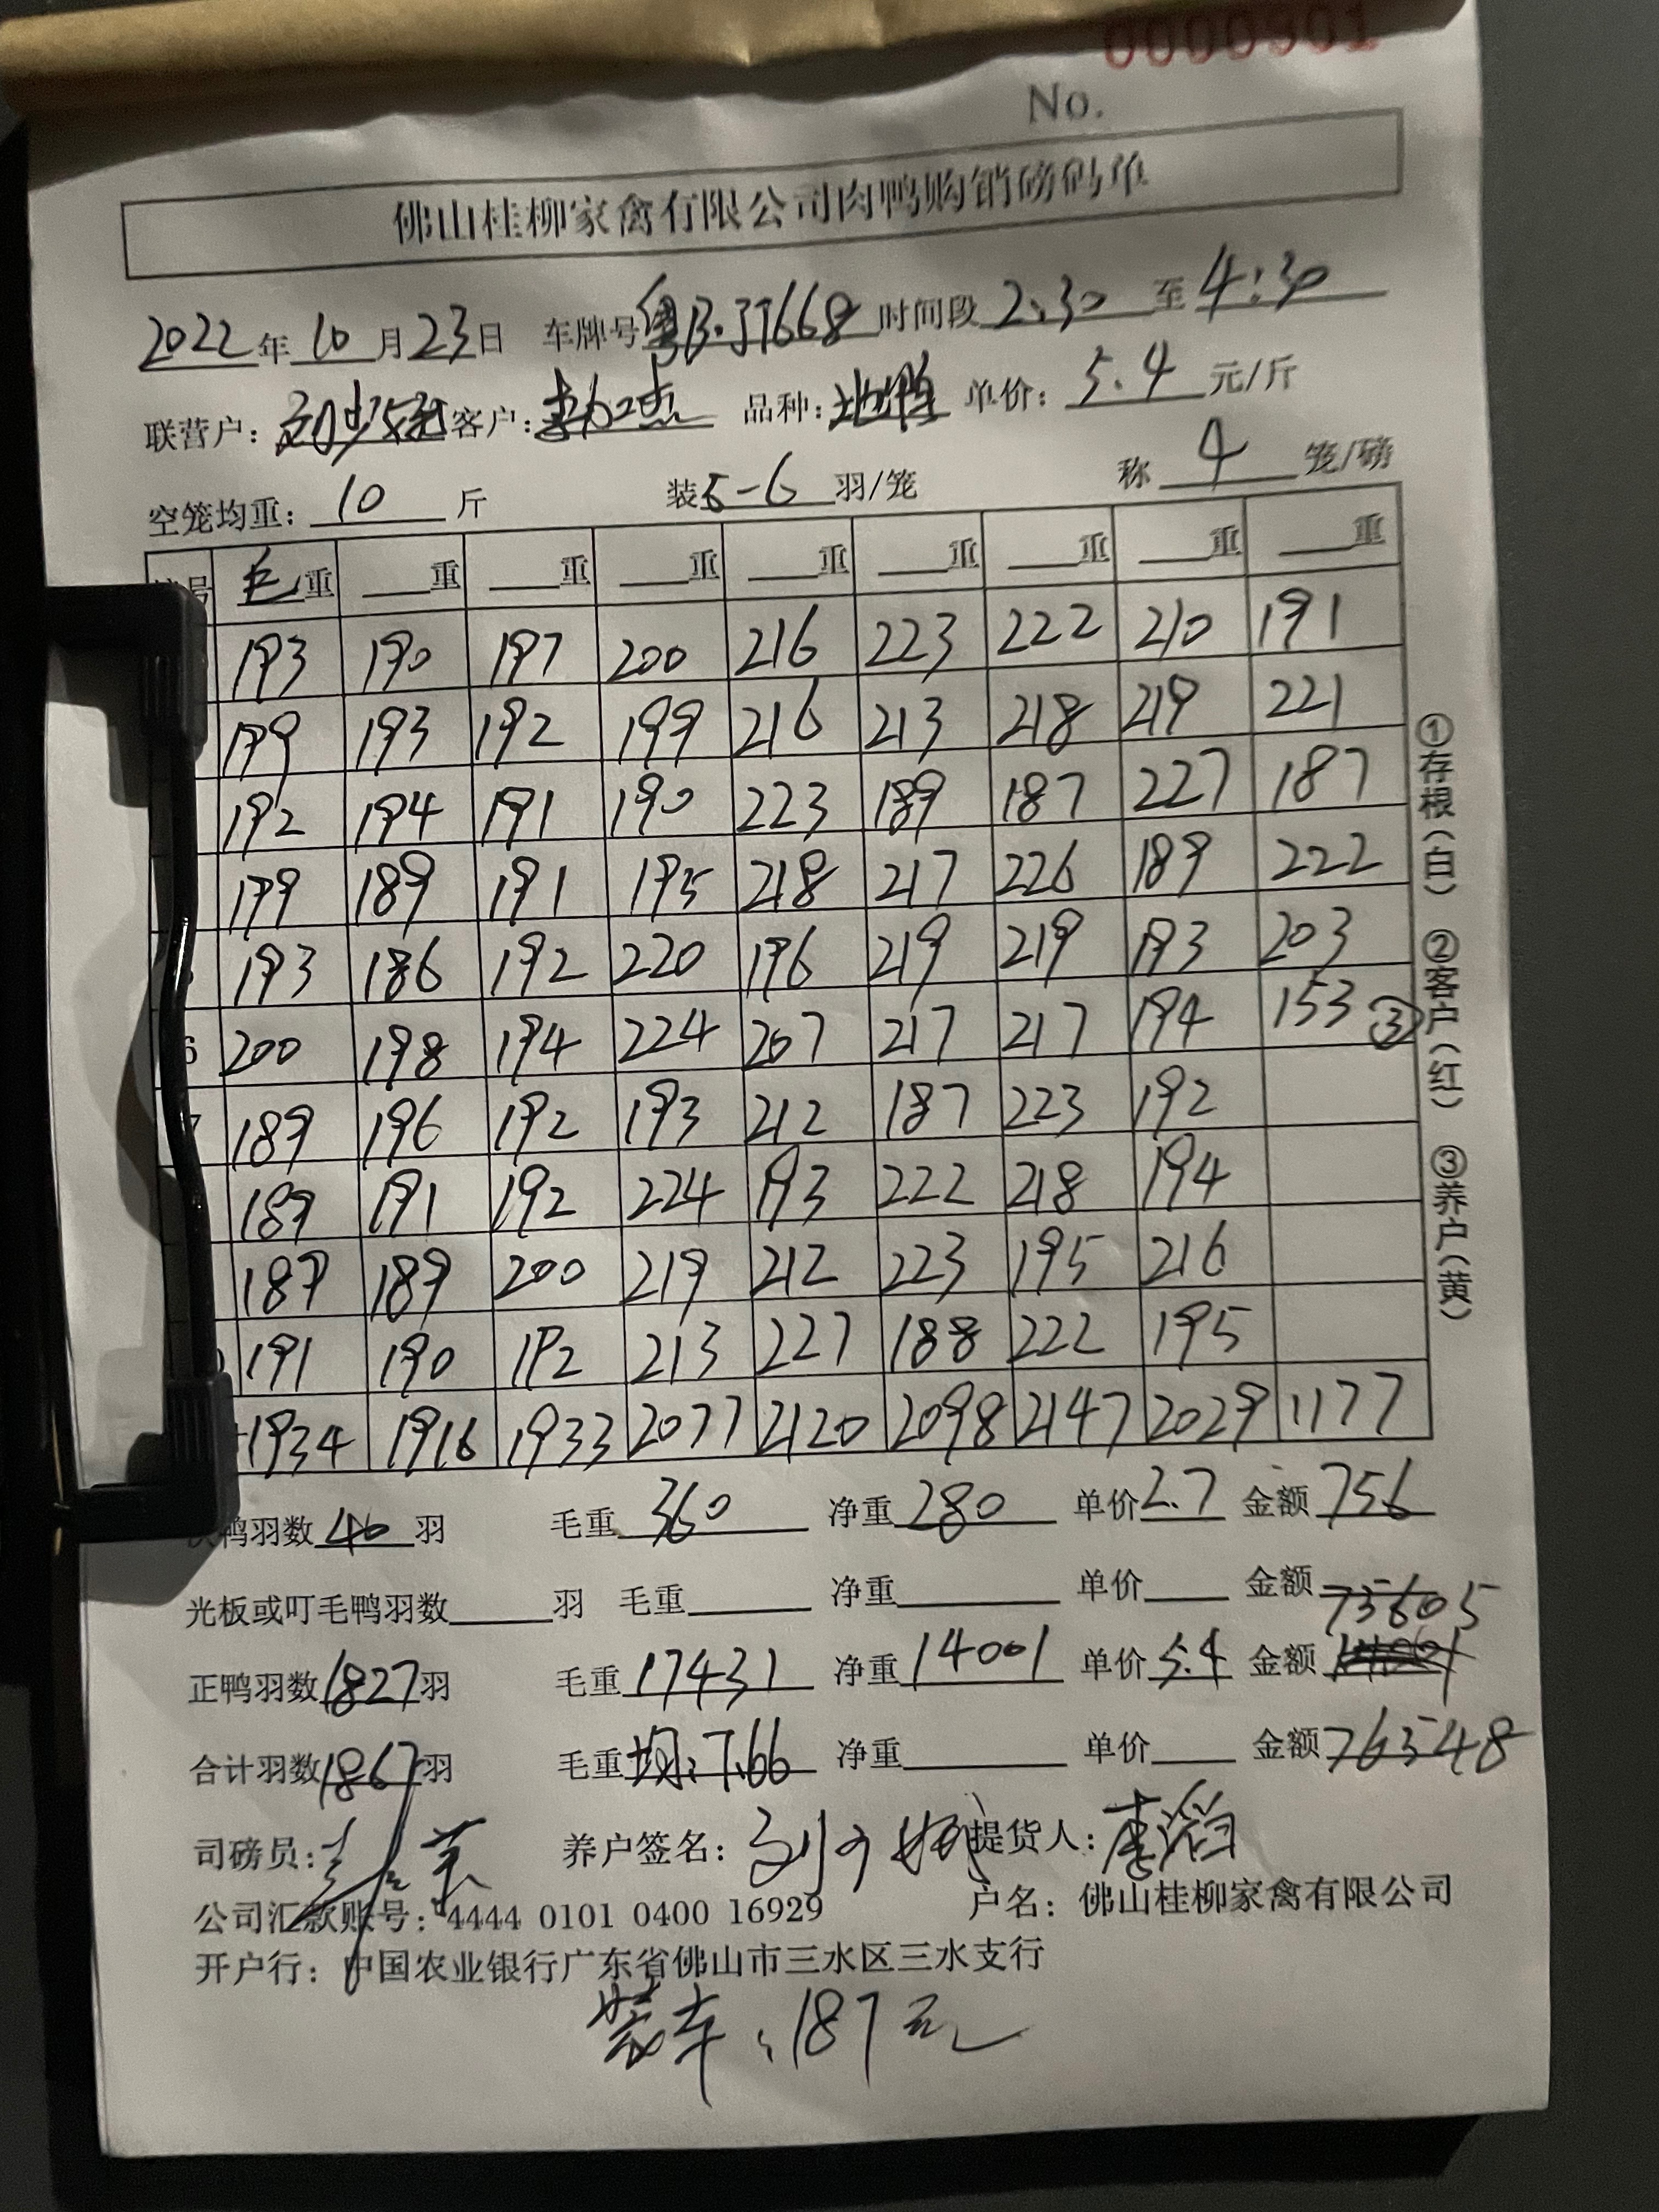 0000301
No.
佛山桂柳家禽有限公司肉鸭购销磅码单
2022年10月23日 车牌号 时间段2:30至4:30
联营户: 客户: 品种: 单价:5.4元/斤
空笼均重:10斤 装5-6羽/笼 称4笼/磅
号 毛重 重 重 重 重 重 重 重 重
193 190 197 200 216 223 222 210 191
199 193 192 199 216 213 218 219 221
192 194 191 190 223 189 187 227 187
199 189 191 195 218 217 226 189 222
193 186 192 220 196 219 219 193 203
6 200 198 194 224 207 217 217 194 153 ③
7 189 196 192 193 212 187 223 192
189 191 192 224 193 222 218 194
189 189 200 219 212 223 195 216
191 190 192 213 227 188 222 195
1934 1916 1933 2077 2120 2098 2147 2029 1177
鸭羽数40羽 毛重360 净重280 单价2.7 金额756
光板或叮毛鸭羽数 羽 毛重 净重 单价 金额
75605
正鸭羽数1827羽 毛重17431 净重14001 单价5.4 金额
合计羽数1867羽 毛重均:7.66 净重 单价 金额76548
司磅员: 养户签名: 提货人:李滔
公司汇款账号:4444 0101 0400 16929 户名:佛山桂柳家禽有限公司
开户行:中国农业银行广东省佛山市三水区三水支行
装车:187元
①存根(白) ②客户(红) ③养户(黄)